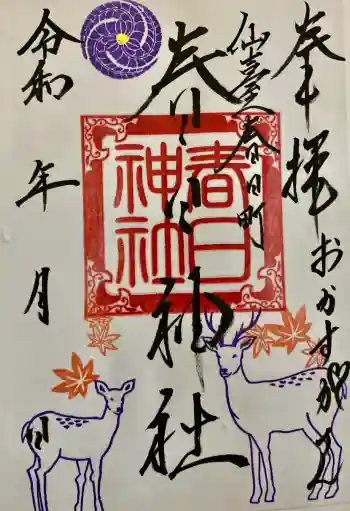 奉拝
おかすがさん
仙臺春日町
春日神社
春日
神社
令和
年
月
日